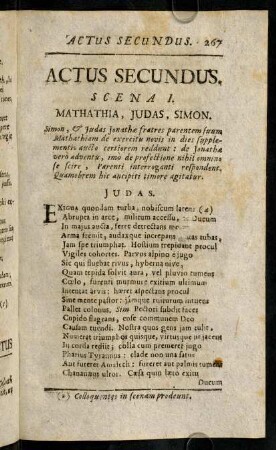 ACTUS SECUNDUS. 267
ACTUS SECUNDUS.
SCENA I.
MATHATHIA, JUDAS, SIMON.
Simon, & Judas Jonathæ fratres parentem suum
Mathathiam de exercitu novis in dies supple-
mentis aucto certiorem reddunt: de Jonathæ
verò adventu, imò de profectione nihil omnino
se scire, Parenti interroganti respondent.
Quamobrem hic ancipiti timore agitatur.
JUDAS.
Exigua quondam turba, nobiscum latens (a)
Abrupta in arce, militum accessu, Ducum
In majus aucta, ferre detrectans
Arma fremit, audaxque increpans tubas,
Jam spe triumphat. Hostium trepidant procul
Vigiles cohortes. Parvus alpino è jugo
Sic qui fluebat rivus, hyberna nive,
Quam tepida solvit aura, vel pluvio tumens
Cœlo, furenti murmure exitium ultimum
Intentat arvis: hæret aspectans procul
Sine mente pastor: jamque ruiturum intuens
Pallet colonus. Sim Pectori subdit faces
Cupido flagrans, esse communem Deo
Causam tuendi. Nostra quos gens jam tulit,
Numerat triumphos quisque, virtutque ne jacens
In corda resiliit; colla cum premeret jugo
Pharius Tyrannus: clade non una satus
Aut fureret Amalech: fureret aut palmis tumens
Chananæus ultor. Cæsa quin
Ducum
(a) Colloquentes in scenam prodeunt.